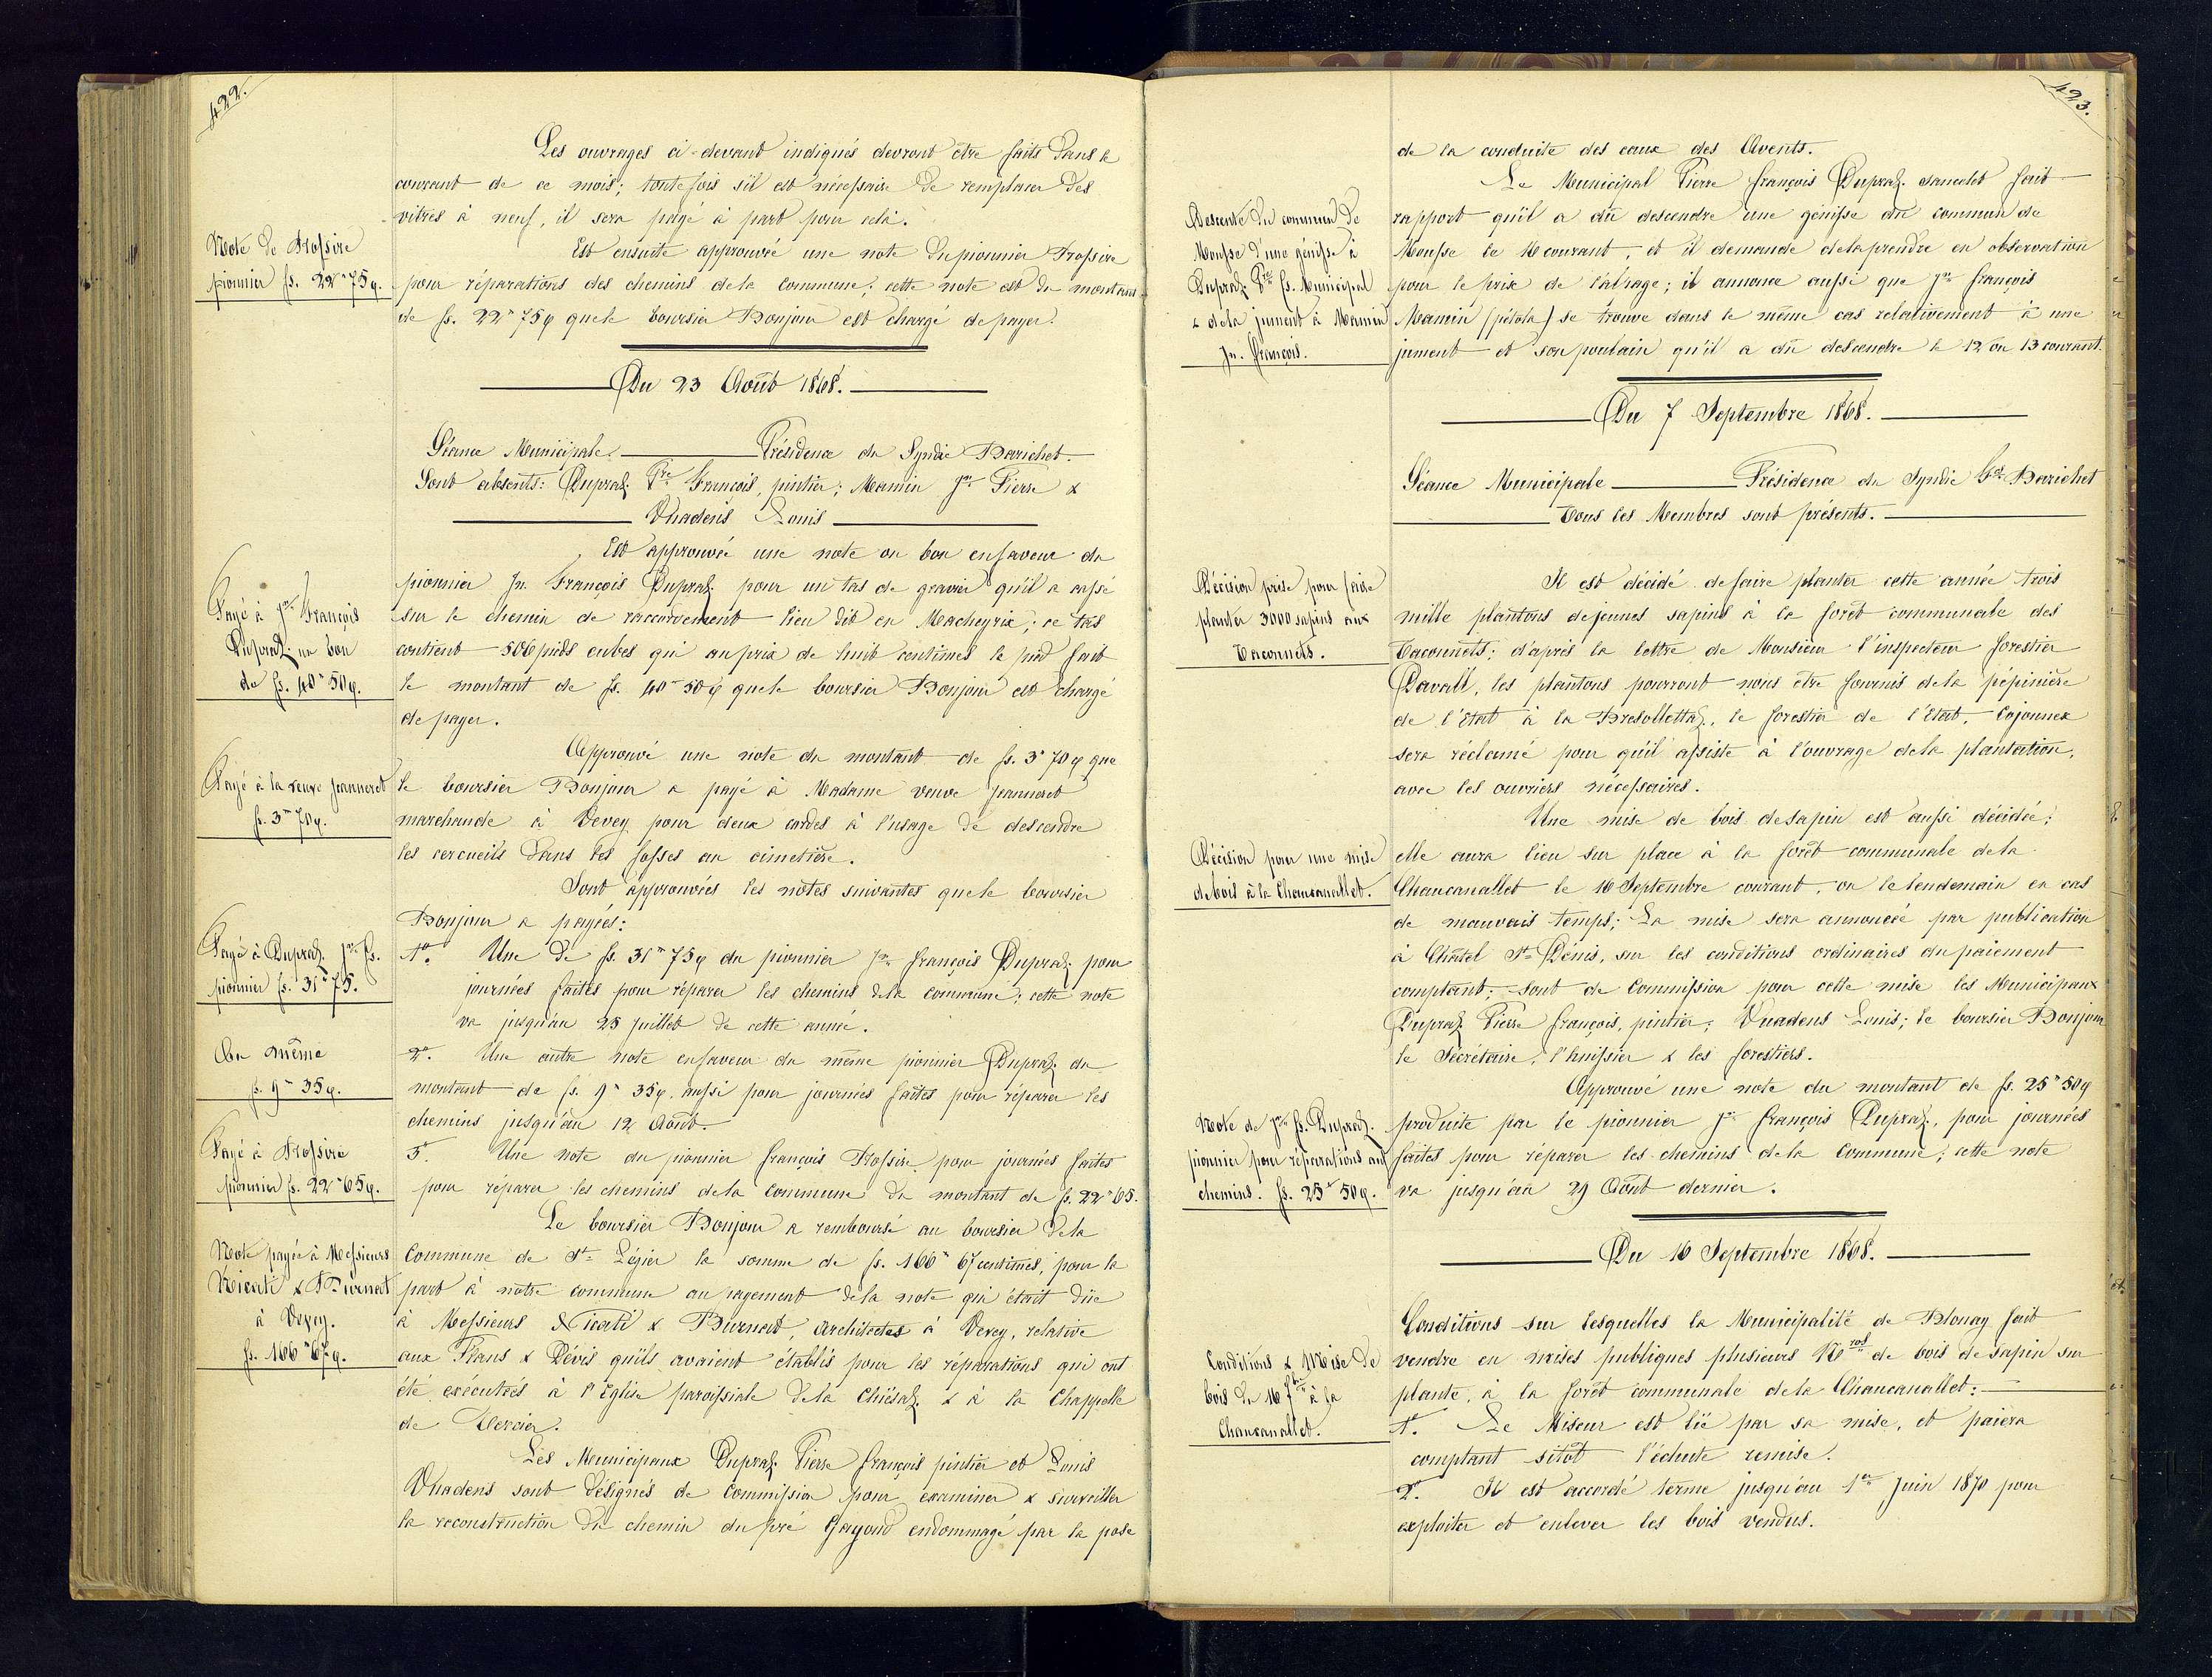 422.
Les ouvrages ci-devant indiqués devront être faits dans le
courant de ce mois; toutefois s'il est nécessaire de remplacer des
vitres à neuf, il sera payé à part pour cela.
Note de Trossire
pionnier fs. 22" 75 c.
Est ensuite approuvée une note du pionnier Trossire
pour réparations des chemins de la commune; cette note est du montant
de fs. 22" 75 c que le boursier Bonjour est chargé de payer.
Du 23 Août 1868.
Séance Municipale. Présidence du Syndic Barichet.
Sont absents: Dupraz Pre François, pintier; Mamin Jn Pierre &
Vuadens Louis
Payé à Jn François
Dupraz un bon
de fs. 40" 50 c.
Est approuvée une note ou bon en faveur du
pionnier Jn François Dupraz pour un tas de gravier qu'il a cassé
sur le chemin de raccordement lieu dit en Macheyrix; ce tas
contient 506 pieds cubes qui au prix de huit centimes le pied fait
le montant de fs. 40" 50 c que le boursier Bonjour est chargé
de payer.
Payé à la veuve Jeanneret
fs. 3" 70 c.
Approuvé une note du montant de fs. 3" 70 c que
le boursier Bonjour a payé à Madame veuve Jeanneret
marchande à Vevey pour deux cordes à l'usage de descendre
les cercueils dans les fosses au cimetière.
Sont approuvées les notes suivantes que le boursier
Bonjour a payées:
Payé à Dupraz Jn fs.
pionnier fs. 31" 75.
1º. Une de fs. 31" 75 c du pionnier Jn François Dupraz pour
journées faites pour réparer les chemins de la commune; cette note
va jusqu'au 25 juillet de cette année.
Au même
fs. 9" 35 c.
2º. Une autre note en faveur du même pionnier Dupraz du
montant de fs. 9" 35 c, aussi pour journées faites pour réparer les
chemins jusqu'au 12 Août.
Payé à Trossire
pionnier fs. 22" 65 c.
3º. Une note du pionnier François Trossire pour journées faites
pour réparer les chemins de la commune du montant de fs. 22" 65.
Note payée à Messieurs
Nicati & Burnat
à Vevey.
fs. 166" 67 c.
Le boursier Bonjour a remboursé au boursier de la
Commune de St. Légier la somme de fs. 166" 67 centimes, pour la
part à notre commune au payement de la note qui était dûe
à Messieurs Nicati & Burnat, architectes à Vevey, relative
aux Plans & Dévis qu'ils avaient établis pour les réparations qui ont
été exécutées à l'Eglise paroissiale de la Chiésaz & à la Chappelle
de
Les Municipaux Dupraz Pierre François pintier et Louis
Vuadens sont désignés de Commission pour examiner & surveiller
la reconstruction du chemin du pré endommagé par la pose
423.
de la conduite des eaux des Avents.
Descente du commun de
Mousse d'une génisse à
Dupraz Pre fs. Municipal
& de la jument à Mamin
Jn. François.
Le Municipal Pierre François Dupraz sancelet fait
rapport qu'il a dû descendre une génisse du commun de
Mousse le 16 courant, et il demande de la prendre en observation
pour le prix de l'alpage; il annonce aussi que Jn François
Mamin (pétola) se trouve dans le même cas relativement à une
jument et son poulain qu'il a dû descendre le 12 ou 13 courant.
Du 7 Septembre 1868.
Séance Municipale Présidence du Syndic Barichet
Tous les Membres sont présents.
Décision prise pour faire
planter 3000 sapins aux
Taconnets.
Il est décidé de faire planter cette année trois
mille plantons de jeunes sapins à la forêt communale des
Taconnets; d'après la lettre de Monsieur l'inspecteur forestier
Davall, les plantons pourront nous être fournis de la pépinière
de l'Etat à la le forestier de l'Etat,
sera réclamé pour qu'il assiste à l'ouvrage de la plantation,
avec les ouvriers nécessaires.
Décision pour une mise
de bois à la Chaucanallet.
Une mise de bois de sapin est aussi décidée;
elle aura lieu sur place à la forêt communale de la
Chaucanallet le 16 Septembre courant, ou le lendemain en cas
de mauvais temps; La mise sera annoncée par publication
à Châtel St-Dénis, sur les conditions ordinaires du paiement
comptant; sont de Commission pour cette mise les Municipaux
Dupraz Pierre François, pintier; Vuadens Louis; le boursier Bonjour
le Secrétaire, l'huissier & les forestiers.
Note de Jn fs. Dupraz
pionnier pour réparations aux
chemins. fs. 25" 50 c.
Approuvé une note du montant de fs. 25" 50 c
produite par le pionnier Jn François Dupraz, pour journées
faites pour réparer les chemins de la Commune; cette note
va jusqu'au 29 Août dernier.
Du 16 Septembre 1868.
Conditions & Mise de
bois du 16 7bre à la
Chaucanallet.
Conditions sur lesquelles la Municipalité de Blonay fait
vendre en mises publiques plusieurs Nros de bois de sapin sur
plante, à la forêt communale de la Chaucanallet:
1º. Le Miseur est lié par sa mise, et paiera
comptant sitôt l'échute remise.
2º. Il est accordé terme jusqu'au 1er Juin 1870 pour
exploiter et enlever les bois vendus.